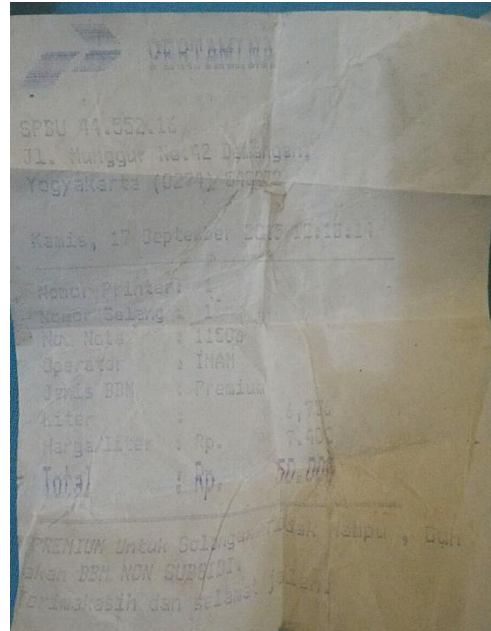 PERTAMINA
SPBU 44.552.16
Jl. Munggur No.42 Demangan,
Yogyakarta (0274)
Kamis, 17 September
Nomor Printer: 1
Nomor Selang :
No. Nota :
Operator : IMAM
Jenis BBM : Premium
Liter :
Harga/Liter : Rp. 7.400
Total : Rp. 50.000
PREMIUM Untuk Golongan Tidak Mampu ,
BBM NON SUBSIDI.
Terimakasih dan selamat jalan